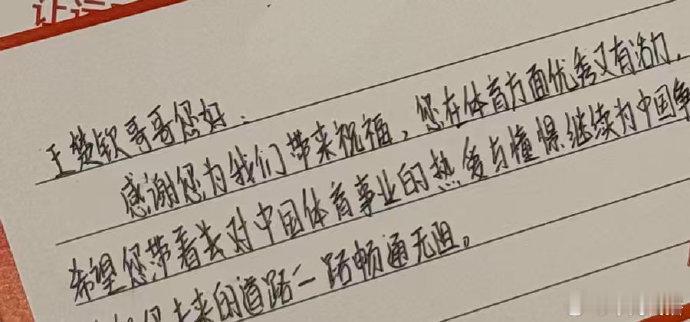 王楚钦哥哥您好：
感谢您为我们带来祝福，您在体育方面优秀又有活力，
希望您带着去对中国体育事业的热爱与憧憬继续为中国争
未来的道路一路畅通无阻。